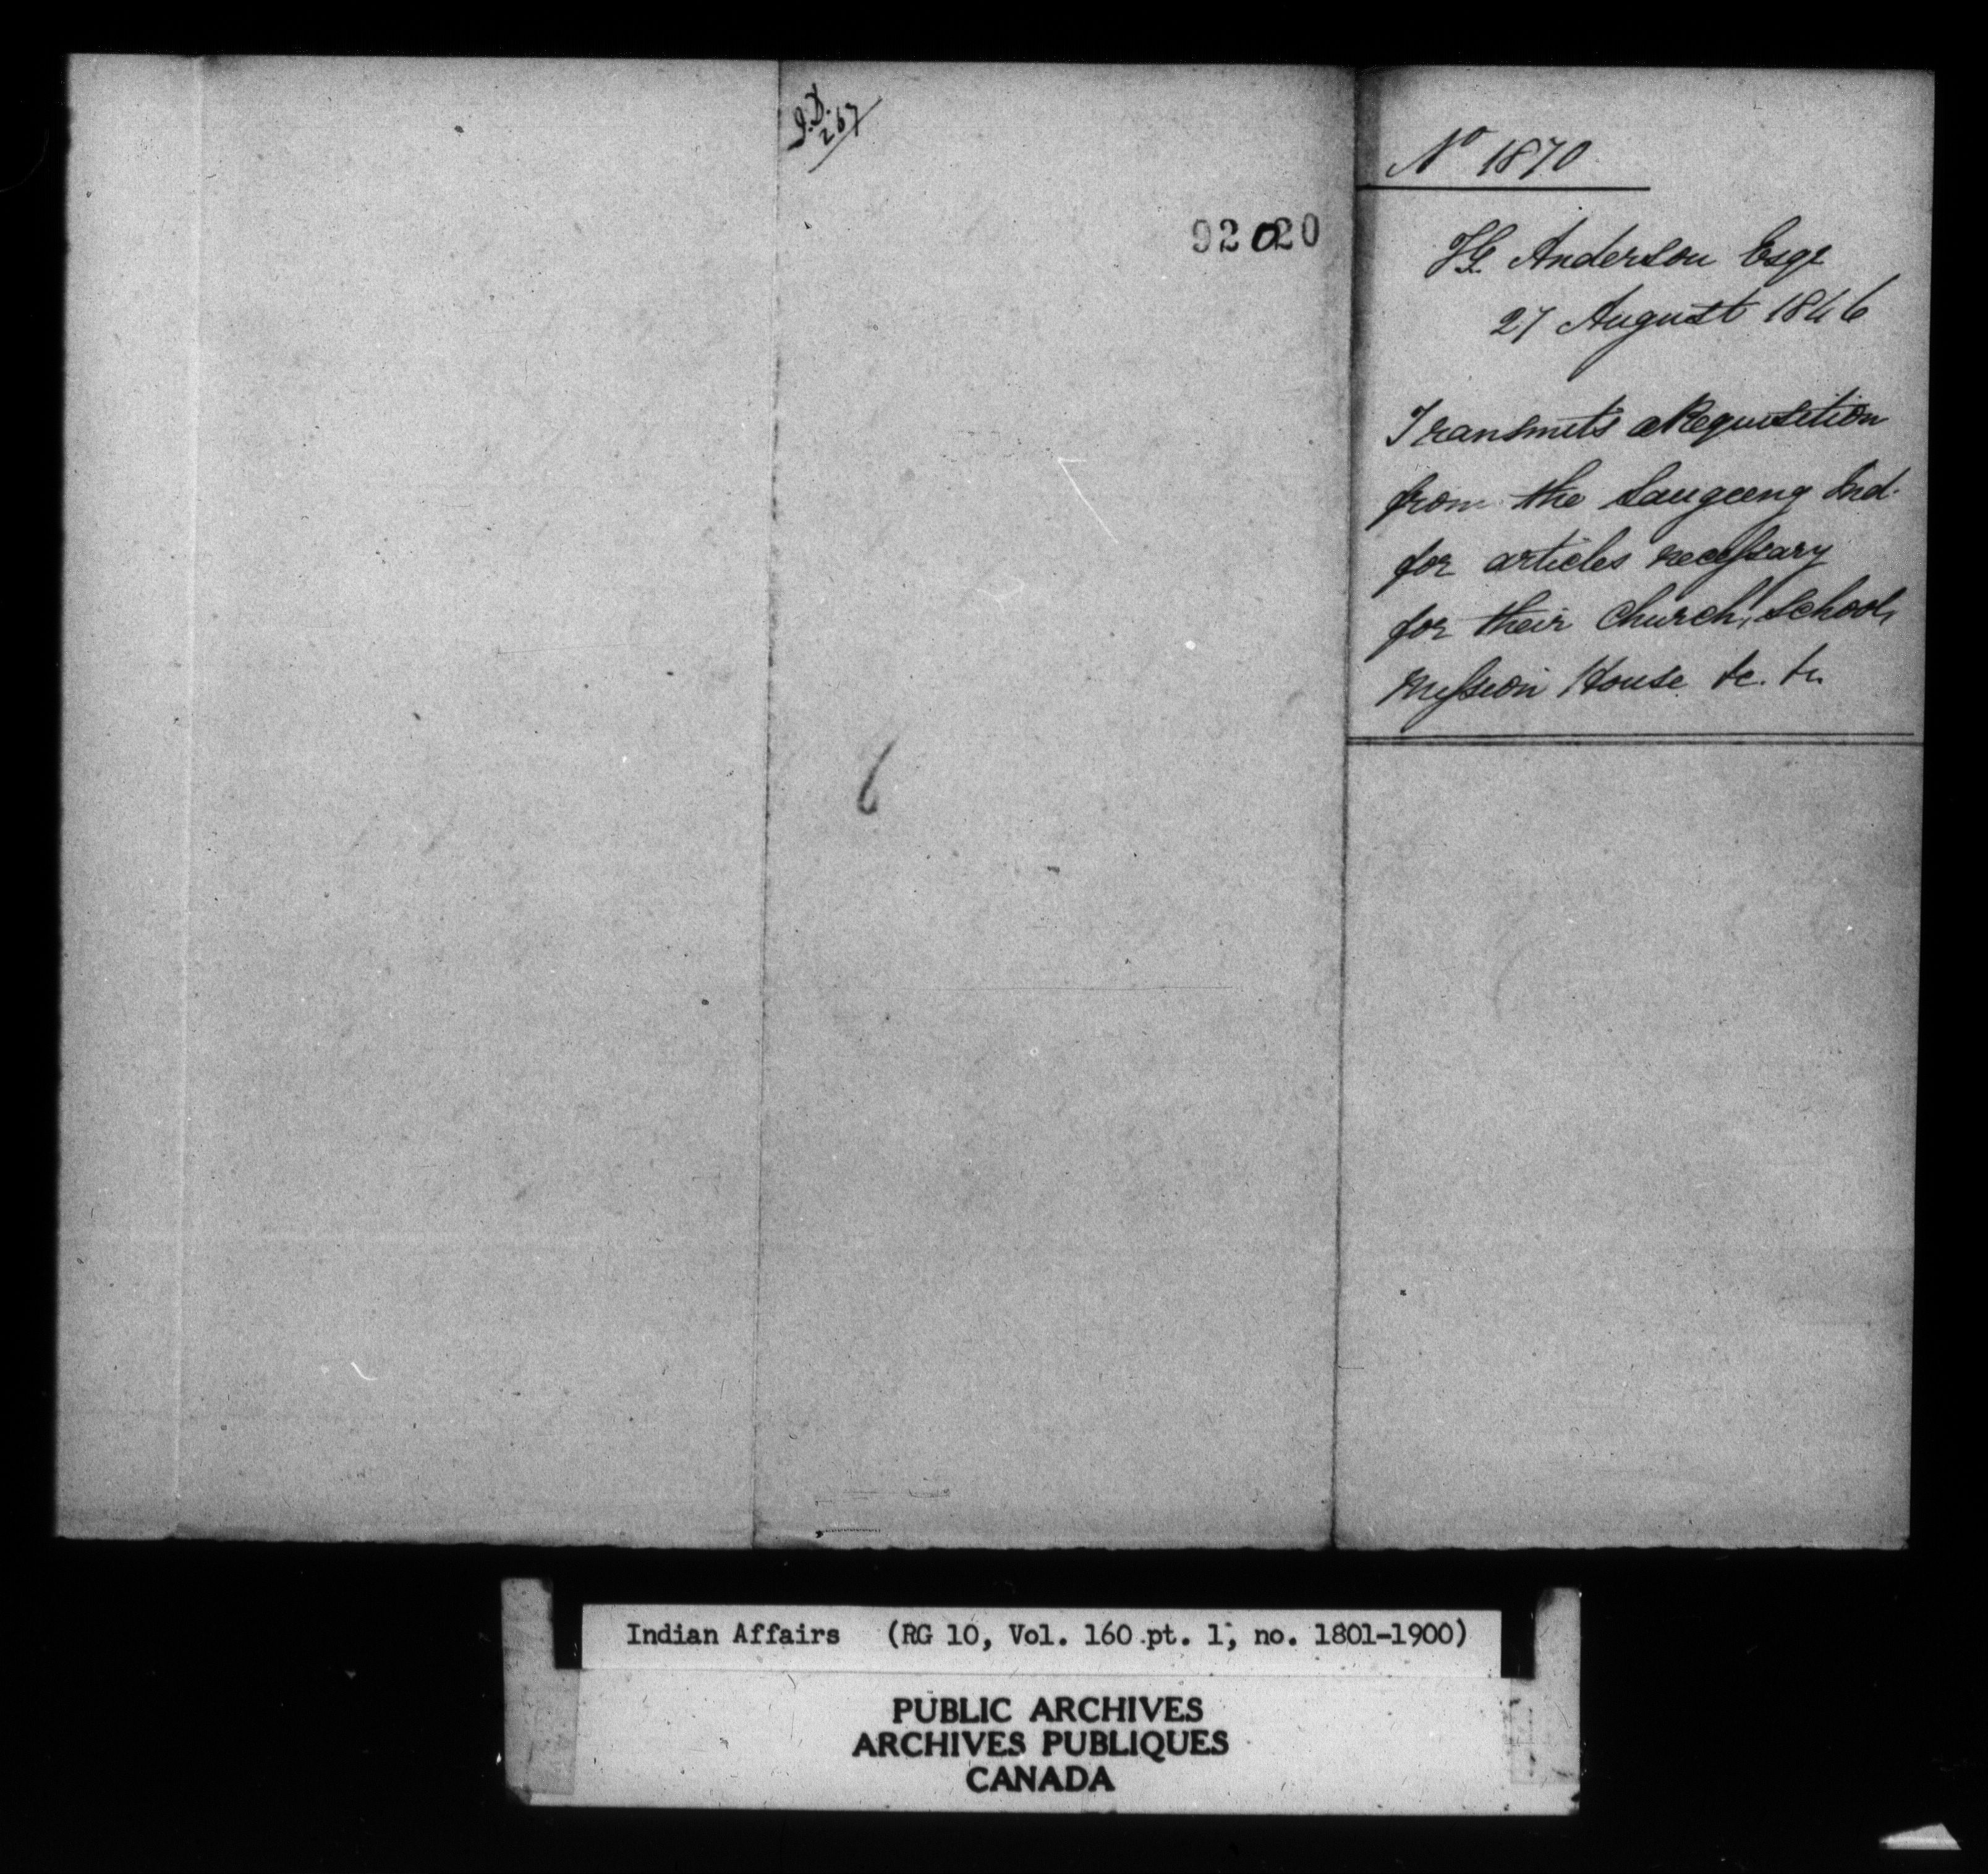 I.D.
267
92020
No 1870
TG. Anderson Esqr
27 August 1846
Transmits a Requisition
from the Saugeeng Ind.
for articles necessary
for their Church, School,
Mission House &c. &c.
6
Indian Affairs (RG 10, Vol. 160 pt. 1, no. 1801-1900)
PUBLIC ARCHIVES
ARCHIVES PUBLIQUES
CANADA